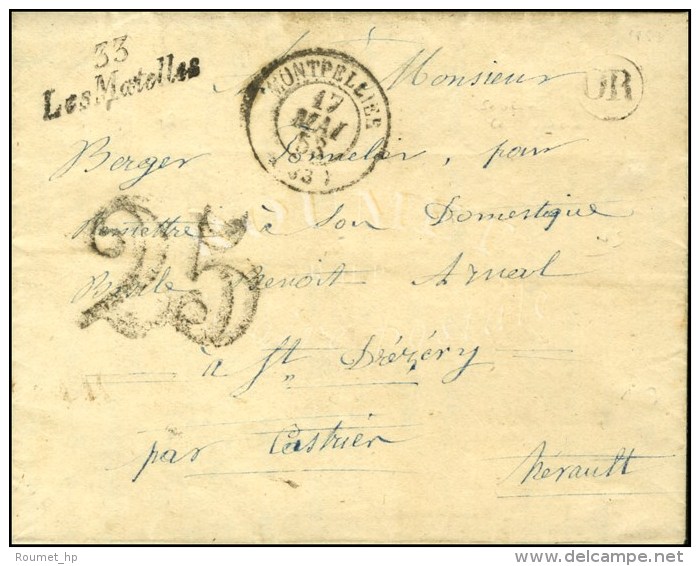 33
Les Matelles
MONTPELLIER
17
MAI
(33)
OR
25
A Monsieur
Berger Sommelier, pour
Remettre à Son Domestique
Benoit Arnal
à St Drézéry
par Castries
hérault
Roumet_hp
©delcampe.net